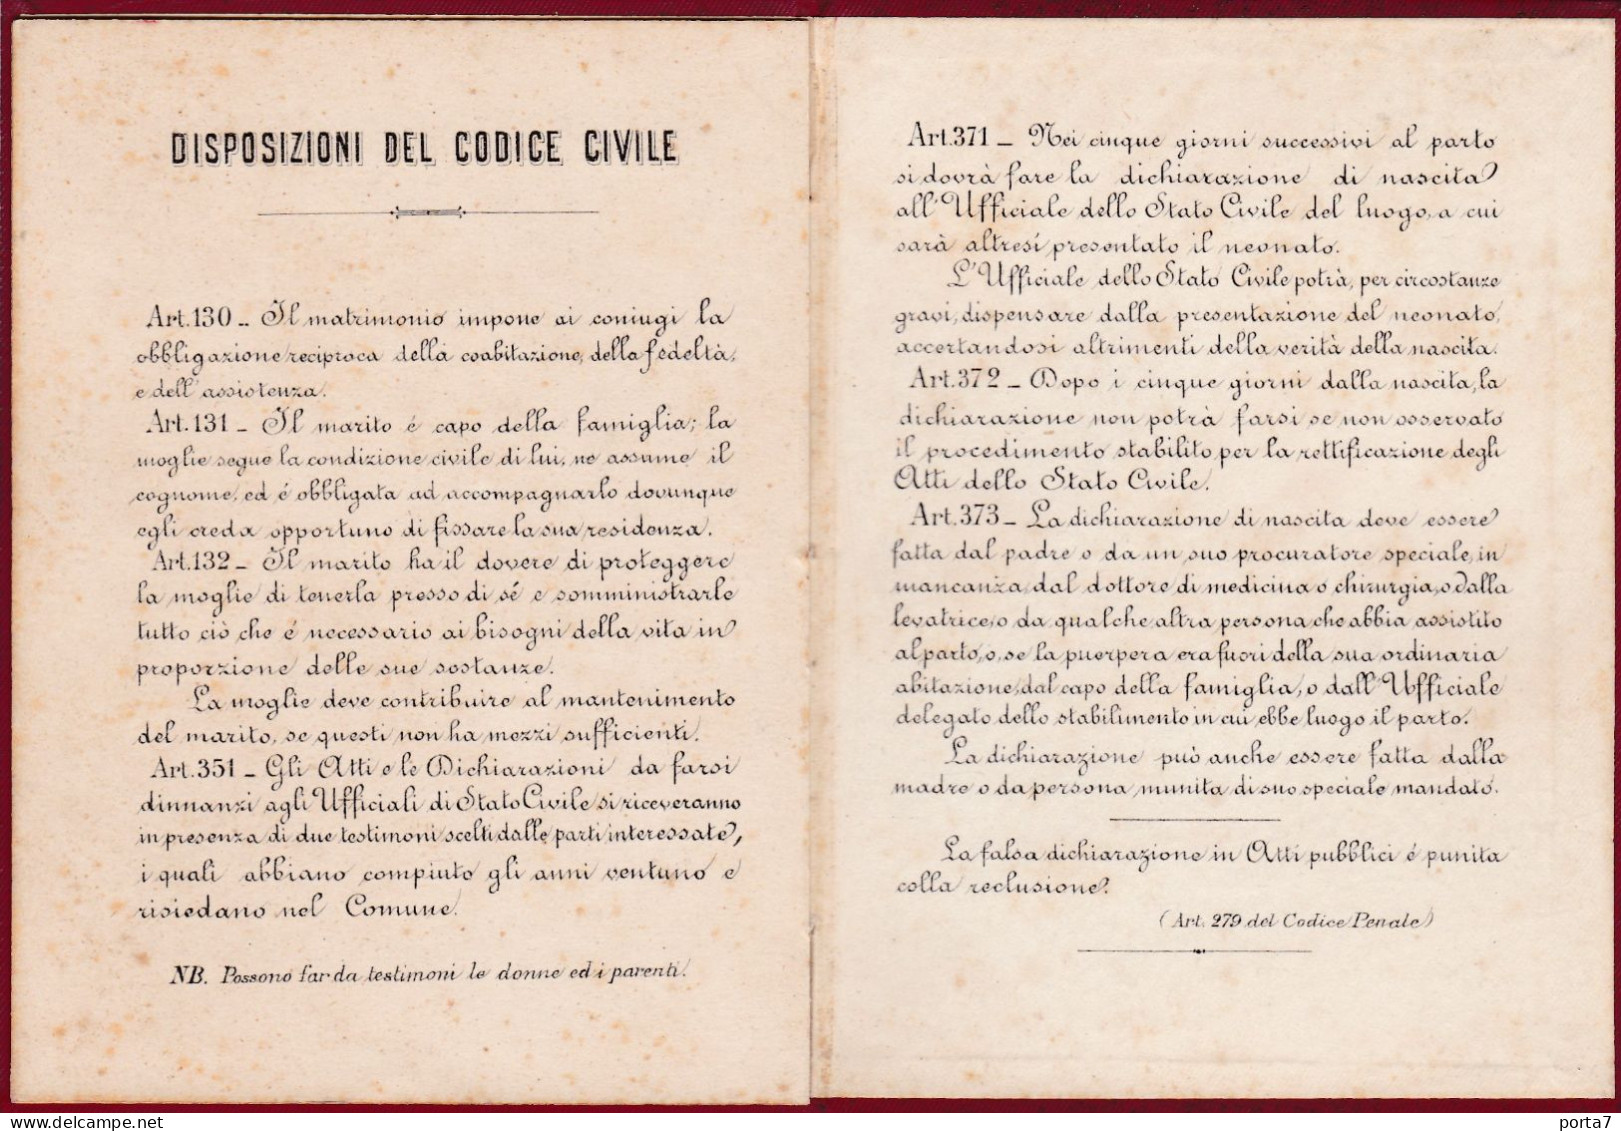 DISPOSIZIONI DEL CODICE CIVILE
Art. 130 – Il matrimonio impone ai coniugi la
obbligazione reciproca della coabitazione, della fedeltà,
e dell'assistenza.
Art. 131 – Il marito é capo della famiglia; la
moglie segue la condizione civile di lui, ne assume il
cognome, ed é obbligata ad accompagnarlo dovunque
egli creda opportuno di fissare la sua residenza.
Art. 132 – Il marito ha il dovere di proteggere
la moglie di tenerla presso di sé e somministrarle
tutto ciò che é necessario ai bisogni della vita in
proporzione delle sue sostanze.
La moglie deve contribuire al mantenimento
del marito, se questi non ha mezzi sufficienti.
Art. 351 – Gli Atti e le Dichiarazioni da farsi
dinnanzi agli Ufficiali di Stato Civile si riceveranno
in presenza di due testimoni scelti dalle parti interessate,
i quali abbiano compiuto gli anni ventuno e
risiedano nel Comune.
NB. Possono far da testimoni le donne ed i parenti.
Art. 371 – Nei cinque giorni successivi al parto
si dovrà fare la dichiarazione di nascita
all'Ufficiale dello Stato Civile del luogo, a cui
sarà altresí presentato il neonato.
L'Ufficiale dello Stato Civile potrà, per circostanze
gravi, dispensare dalla presentazione del neonato,
accertandosi altrimenti della verità della nascita.
Art. 372 – Dopo i cinque giorni dalla nascita, la
dichiarazione non potrà farsi se non osservato
il procedimento stabilito per la rettificazione degli
Atti dello Stato Civile.
Art. 373 – La dichiarazione di nascita deve essere
fatta dal padre o da un suo procuratore speciale, in
mancanza, dal dottore di medicina o chirurgia, o dalla
levatrice, o da qualche altra persona che abbia assistito
al parto, o, se la puerpera era fuori della sua ordinaria
abitazione, dal capo della famiglia, o dall'Ufficiale
delegato dello stabilimento in cui ebbe luogo il parto.
La dichiarazione può anche essere fatta dalla
madre o da persona munita di suo speciale mandato.
La falsa dichiarazione in Atti pubblici é punita
colla reclusione.
(Art. 279 del Codice Penale)
delcampe.net
porta7